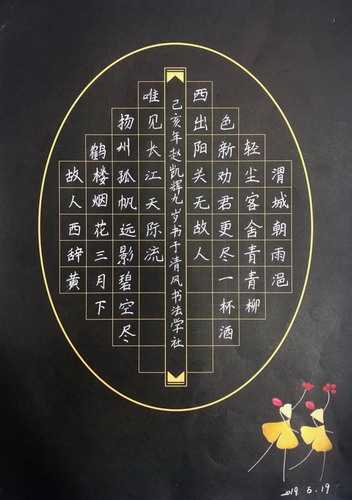 渭城朝雨浥
轻尘客舍青青柳
色新劝君更尽一杯酒
西出阳关无故人
故人西辞黄
鹤楼烟花三月下
扬州孤帆远影碧空尽
唯见长江天际流
己亥年赵凯辉九岁书于清风书法学社
2019 5.19